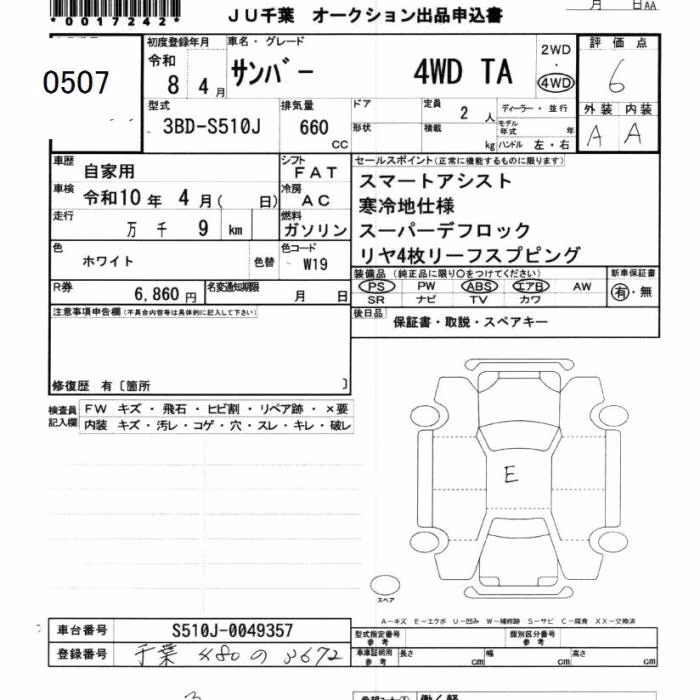 *00017242*
JU千葉 オークション出品申込書
月 日AA
0507
初度登録年月
令和
8 4 月
車名・グレード
サンバー 4WD TA
2WD
4WD
評価点
6
外装 内装
A A
型式
3BD-S510J
排気量
660
CC
ドア
形状
定員
2 人
積載
kg
ディーラー・並行
モデル年式 年
ハンドル 左・右
車歴
自家用
シフト
FAT
車検
令和10年 4月( 日)
冷房
AC
走行
万 千 9 km
燃料
ガソリン
色
ホワイト
色替
色コード
W19
R券
6,860円
名変通知期限
月 日
セールスポイント(正常に機能するものに限ります)
スマートアシスト
寒冷地仕様
スーパーデフロック
リヤ4枚リーフスプピング
装備品(純正品に限り○をつけてください)
PS PW ABS エアB AW
SR ナビ TV カワ
新車保証書
有・無
後日品
保証書・取説・スペアキー
注意事項申告欄(不具合内容等は具体的に記入して下さい)
修復歴 有〔箇所 〕
検査員記入欄
FW キズ・飛石・ヒビ割・リペア跡・×要
内装 キズ・汚レ・コゲ・穴・スレ・キレ・破レ
E
スペア
A-キズ E-エクボ U-凹み W-補修跡 S-サビ C-腐食 XX-交換済
車台番号
S510J-0049357
登録番号
千葉 480 の 3672
型式指定番号
参考
類別区分番号
参考
車庫証明用
参考
長さ cm
幅 cm
高さ cm